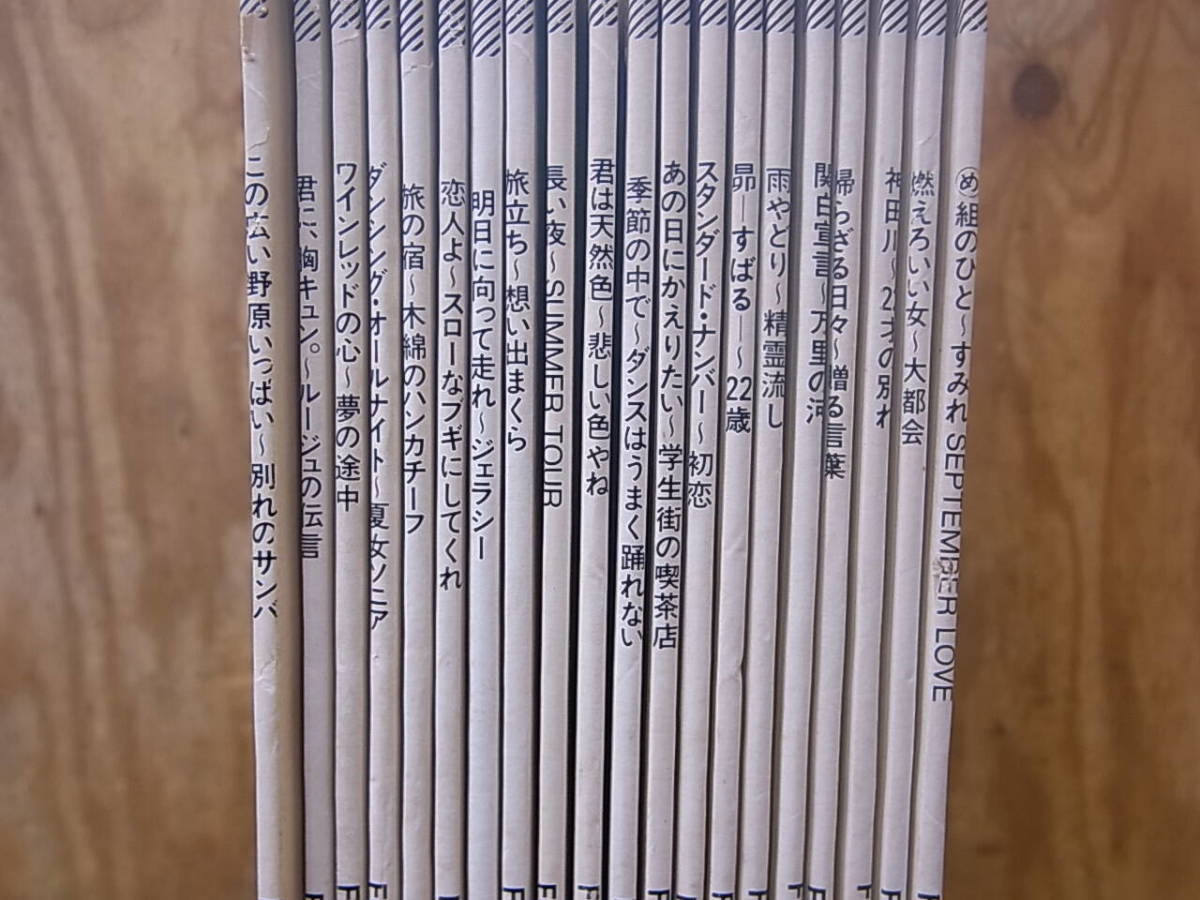 この広い野原いっぱい～別れのサンバ
君に、胸キュン。～ルージュの伝言
ワインレッドの心～夢の途中
ダンシング・オールナイト～夏女ソニア
旅の宿～木綿のハンカチーフ
恋人よ～スローなブギにしてくれ
明日に向って走れ～ジェラシー
旅立ち～想い出まくら
長い夜～SUMMER TOUR
君は天然色～悲しい色やね
季節の中で～ダンスはうまく踊れない
あの日にかえりたい～学生街の喫茶店
スタンダード・ナンバー～初恋
昴―すばる―～22歳
雨やどり～精霊流し
関白宣言～万里の河
帰らざる日々～贈る言葉
神田川～22才の別れ
燃えろいい女～大都会
㋱組のひと～すみれ SEPTEMBER LOVE